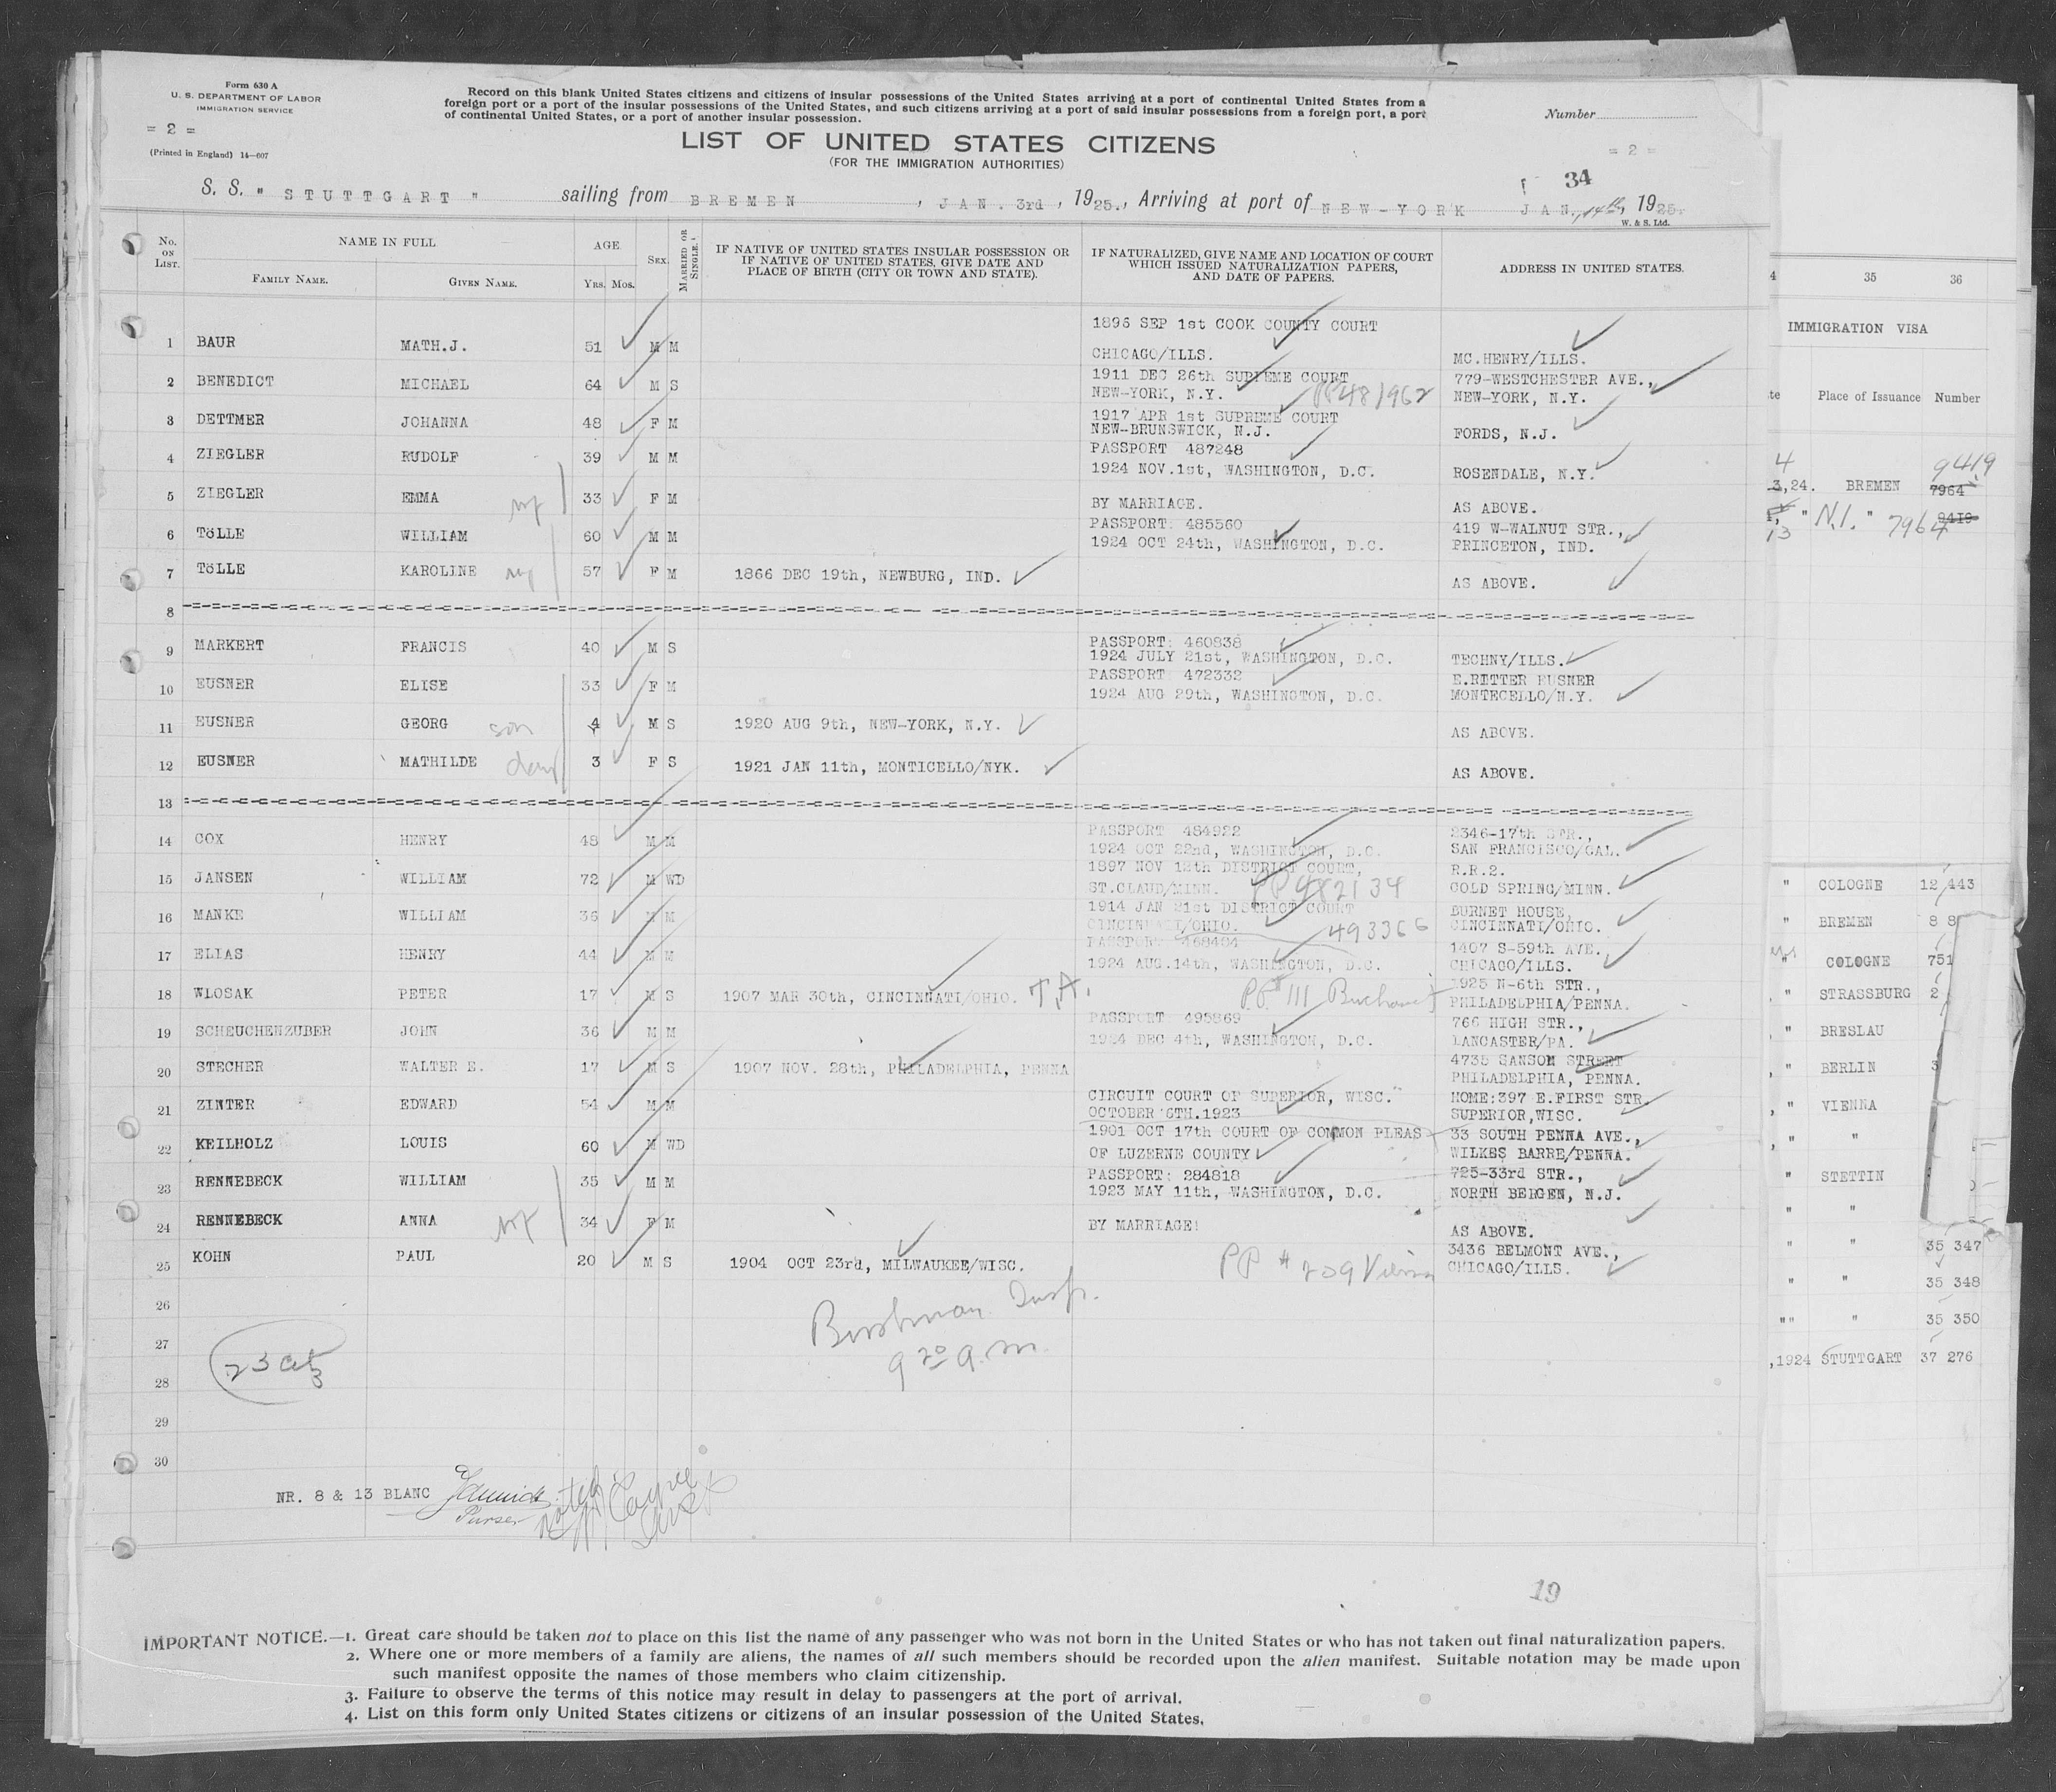 Form 630 A
U. S. DEPARTMENT OF LABOR
IMMIGRATION SERVICE
= 2 =
(Printed in England) 14—607
Record on this blank United States citizens and citizens of insular possessions of the United States arriving at a port of continental United States from a
foreign port or a port of the insular possessions of the United States, and such citizens arriving at a port of said insular possessions from a foreign port, a port
of continental United States, or a port of another insular possession.
LIST OF UNITED STATES CITIZENS
(FOR THE IMMIGRATION AUTHORITIES)
Number
= 2 =
34
S. S. " STUTTGART " sailing from BREMEN, JAN. 3rd, 1925., Arriving at port of NEW-YORK JAN., 14th, 1925.
W. & S. Ltd.
No. ON LIST. NAME IN FULL FAMILY NAME. GIVEN NAME. AGE YRS. MOS. SEX. MARRIED OR SINGLE.
IF NATIVE OF UNITED STATES INSULAR POSSESSION OR
IF NATIVE OF UNITED STATES, GIVE DATE AND
PLACE OF BIRTH (CITY OR TOWN AND STATE).
IF NATURALIZED, GIVE NAME AND LOCATION OF COURT
WHICH ISSUED NATURALIZATION PAPERS,
AND DATE OF PAPERS.
ADDRESS IN UNITED STATES.
1896 SEP 1st COOK COUNTY COURT
1 BAUR MATH.J. 51 M M CHICAGO/ILLS. MC.HENRY/ILLS.
2 BENEDICT MICHAEL 64 M S 1911 DEC 26th SUPREME COURT 779-WESTCHESTER AVE.,
NEW-YORK, N.Y. PP481962 NEW-YORK, N.Y.
3 DETTMER JOHANNA 48 F M 1917 APR 1st SUPREME COURT
NEW-BRUNSWICK, N.J. FORDS, N.J.
4 ZIEGLER RUDOLF 39 M M PASSPORT 487248
1924 NOV.1st, WASHINGTON, D.C. ROSENDALE, N.Y.
5 ZIEGLER EMMA 33 F M BY MARRIAGE. AS ABOVE.
6 TöLLE WILLIAM 60 M M PASSPORT: 485560 419 W-WALNUT STR.,
1924 OCT 24th, WASHINGTON, D.C. PRINCETON, IND.
7 TöLLE KAROLINE 57 F M 1866 DEC 19th, NEWBURG, IND. AS ABOVE.
8
9 MARKERT FRANCIS 40 M S PASSPORT: 460838
1924 JULY 21st, WASHINGTON, D.C. TECHNY/ILLS.
10 EUSNER ELISE 33 F M PASSPORT: 472332 E.RITTER EUSNER
1924 AUG 29th, WASHINGTON, D.C. MONTECELLO/N.Y.
11 EUSNER GEORG son 4 M S 1920 AUG 9th, NEW-YORK, N.Y. AS ABOVE.
12 EUSNER MATHILDE dau 3 F S 1921 JAN 11th, MONTICELLO/NYK. AS ABOVE.
13
14 COX HENRY 48 M M PASSPORT 484922 2346-17th STR.,
1924 OCT 22nd, WASHINGTON, D.C. SAN FRANCISCO/CAL.
15 JANSEN WILLIAM 72 M WD 1897 NOV 12th DISTRICT COURT, R.R.2.
ST.CLAUD/MINN. PP482134 COLD SPRING/MINN.
16 MANKE WILLIAM 36 M M 1914 JAN 21st DISTRICT COURT BURNET HOUSE,
CINCINNATI/OHIO. 493366 CINCINNATI/OHIO.
17 ELIAS HENRY 44 M M PASSPORT 468404 1407 S-59th AVE.
1924 AUG.14th, WASHINGTON, D.C. CHICAGO/ILLS.
18 WLOSAK PETER 17 M S 1907 MAR 30th, CINCINNATI/OHIO. T.A. PP# 111 1925 N-6th STR.,
PHILADELPHIA/PENNA.
19 SCHEUCHENZUBER JOHN 36 M M PASSPORT 495869 766 HIGH STR.,
1924 DEC 4th, WASHINGTON, D.C. LANCASTER/PA.
20 STECHER WALTER E. 17 M S 1907 NOV. 28th, PHILADELPHIA, PENNA 4735 SANSOM STREET
PHILADELPHIA, PENNA.
21 ZINTER EDWARD 54 M M CIRCUIT COURT OF SUPERIOR, WISC. HOME:397 E.FIRST STR.
OCTOBER 6TH.1923 SUPERIOR,WISC.
22 KEILHOLZ LOUIS 60 M WD 1901 OCT 17th COURT OF COMMON PLEAS 33 SOUTH PENNA AVE.,
OF LUZERNE COUNTY WILKES BARRE/PENNA.
23 RENNEBECK WILLIAM 35 M M PASSPORT: 284818 725-33rd STR.,
1923 MAY 11th, WASHINGTON, D.C. NORTH BERGEN, N.J.
24 RENNEBECK ANNA wf 34 F M BY MARRIAGE! AS ABOVE.
25 KOHN PAUL 20 M S 1904 OCT 23rd, MILWAUKEE/WISC. PP # 209 Vienna 3436 BELMONT AVE.,
CHICAGO/ILLS.
26
27
28
29
30
Insp.
9 20 a.m.
NR. 8 & 13 BLANC
Purser
noted
19
IMPORTANT NOTICE.—1. Great care should be taken not to place on this list the name of any passenger who was not born in the United States or who has not taken out final naturalization papers.
2. Where one or more members of a family are aliens, the names of all such members should be recorded upon the alien manifest. Suitable notation may be made upon
such manifest opposite the names of those members who claim citizenship.
3. Failure to observe the terms of this notice may result in delay to passengers at the port of arrival.
4. List on this form only United States citizens or citizens of an insular possession of the United States.
35 36
IMMIGRATION VISA
Place of Issuance Number
4 9419
3,24. BREMEN 7964
" N.I. " 7964 9419
13
" COLOGNE 12 443
" BREMEN 8 8
" COLOGNE 751
" STRASSBURG 2
" BRESLAU
" BERLIN 3
" VIENNA
" "
" STETTIN
" "
" " 35 347
" " 35 348
"" " 35 350
,1924 STUTTGART 37 276